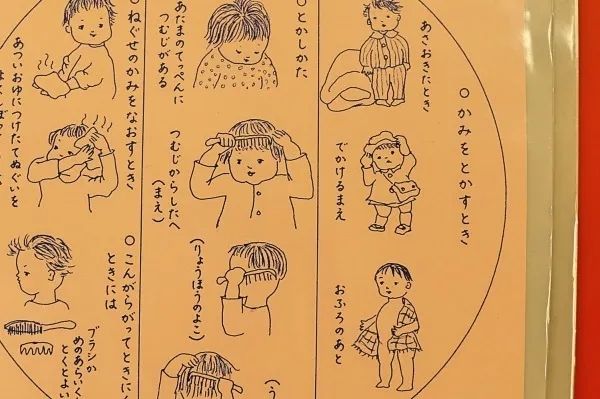 ○かみをとかすとき
あさおきたとき
でかけるまえ
おふろのあと
○とかしかた
あたまのてっぺんに
つむじがある
つむじからしたへ
(まえ)
(りょうほうのよこ)
(う
○ねぐせのかみをなおすとき
あついおゆにつけたてぬぐいを
○こんがらがってときにく
ときには
ブラシか
めのあらいく
とくとよい